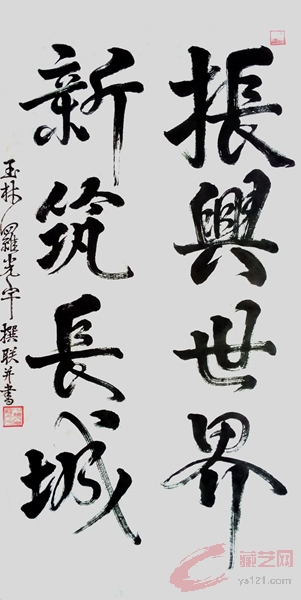 振興世界
新筑長城
玉林羅光宇撰联并書
藏艺网
ys121.com